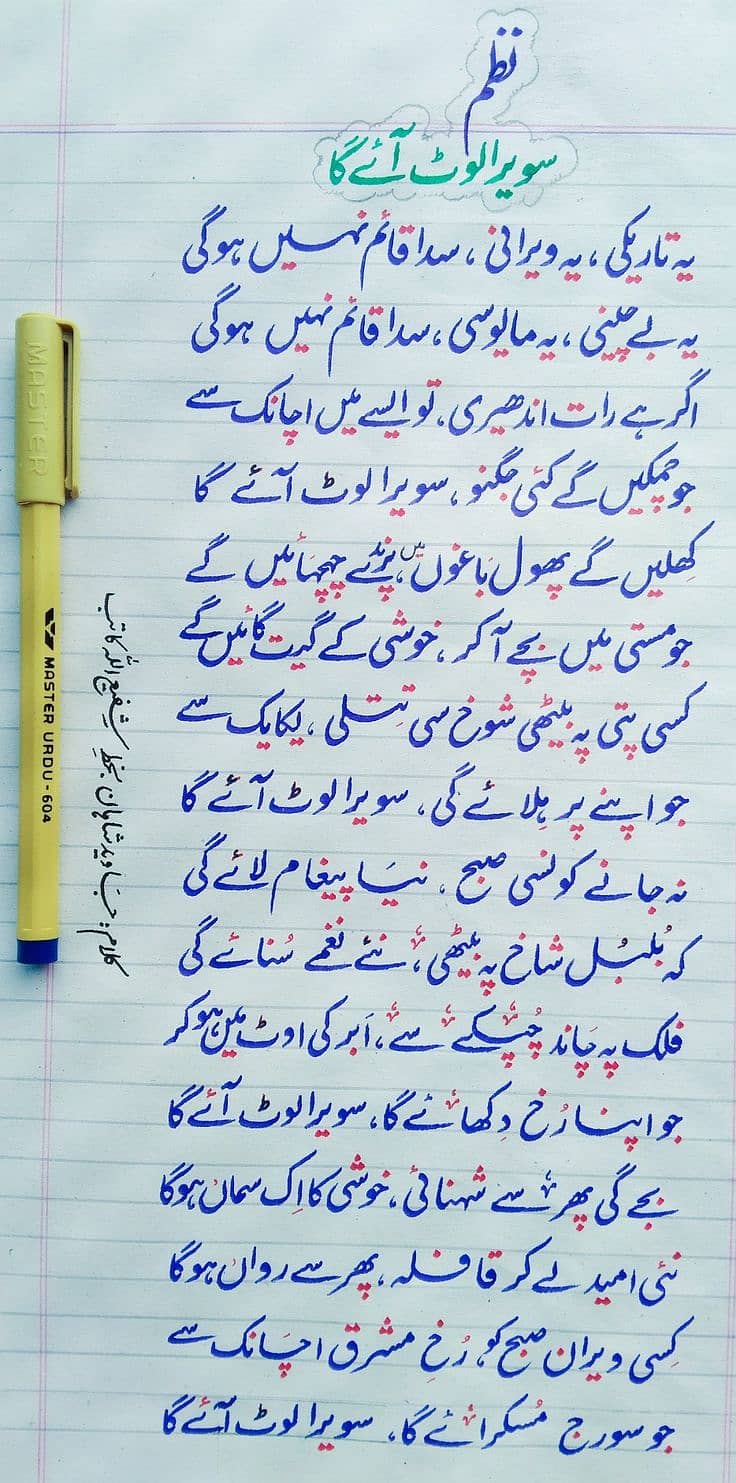 نظم
سویرا لوٹ آئے گا
یہ تاریکی ، یہ ویرانی ، سدا قائم نہیں ہوگی
یہ بے چینی ، یہ مایوسی ، سدا قائم نہیں ہوگی
اگر ہے رات اندھیری ، تو ایسے میں اچانک سے
جو چمکیں گے کئی جگنو ، سویرا لوٹ آئے گا
کِھلیں گے پھول باغوں میں ، پرندے چہچہائیں گے
جو مستی میں بچے آ کر ، خوشی کے گیت گائیں گے
کسی پتی پہ بیٹھی شوخ سی تِتلی ، یکایک سے
جو اپنے پر ہِلائے گی ، سویرا لوٹ آئے گا
نہ جانے کونسی صبح ، نیَا پیغام لائے گی
کہ بُلبُل شاخ پہ بیٹھی ، نئے نغمے سُنائے گی
فلک پہ چَاند چُپکے سے ، اَبر کی اوٹ میں ہو کر
جو اپنا رُخ دِکھائے گا ، سویرا لوٹ آئے گا
بجے گی پھر سے شہنائی ، خوشی کا اِک سماں ہوگا
نئی امید لے کر قافلہ ، پھر سے رواں ہوگا
کِسی ویران صبح کو ، رُخِ مشرق اچَانک سے
جو سورج مُسکرائے گا ، سویرا لوٹ آئے گا
کلام : جاوید شاہان بخطِ شفیع اللہ کاتب
MASTER
MASTER URDU - 604